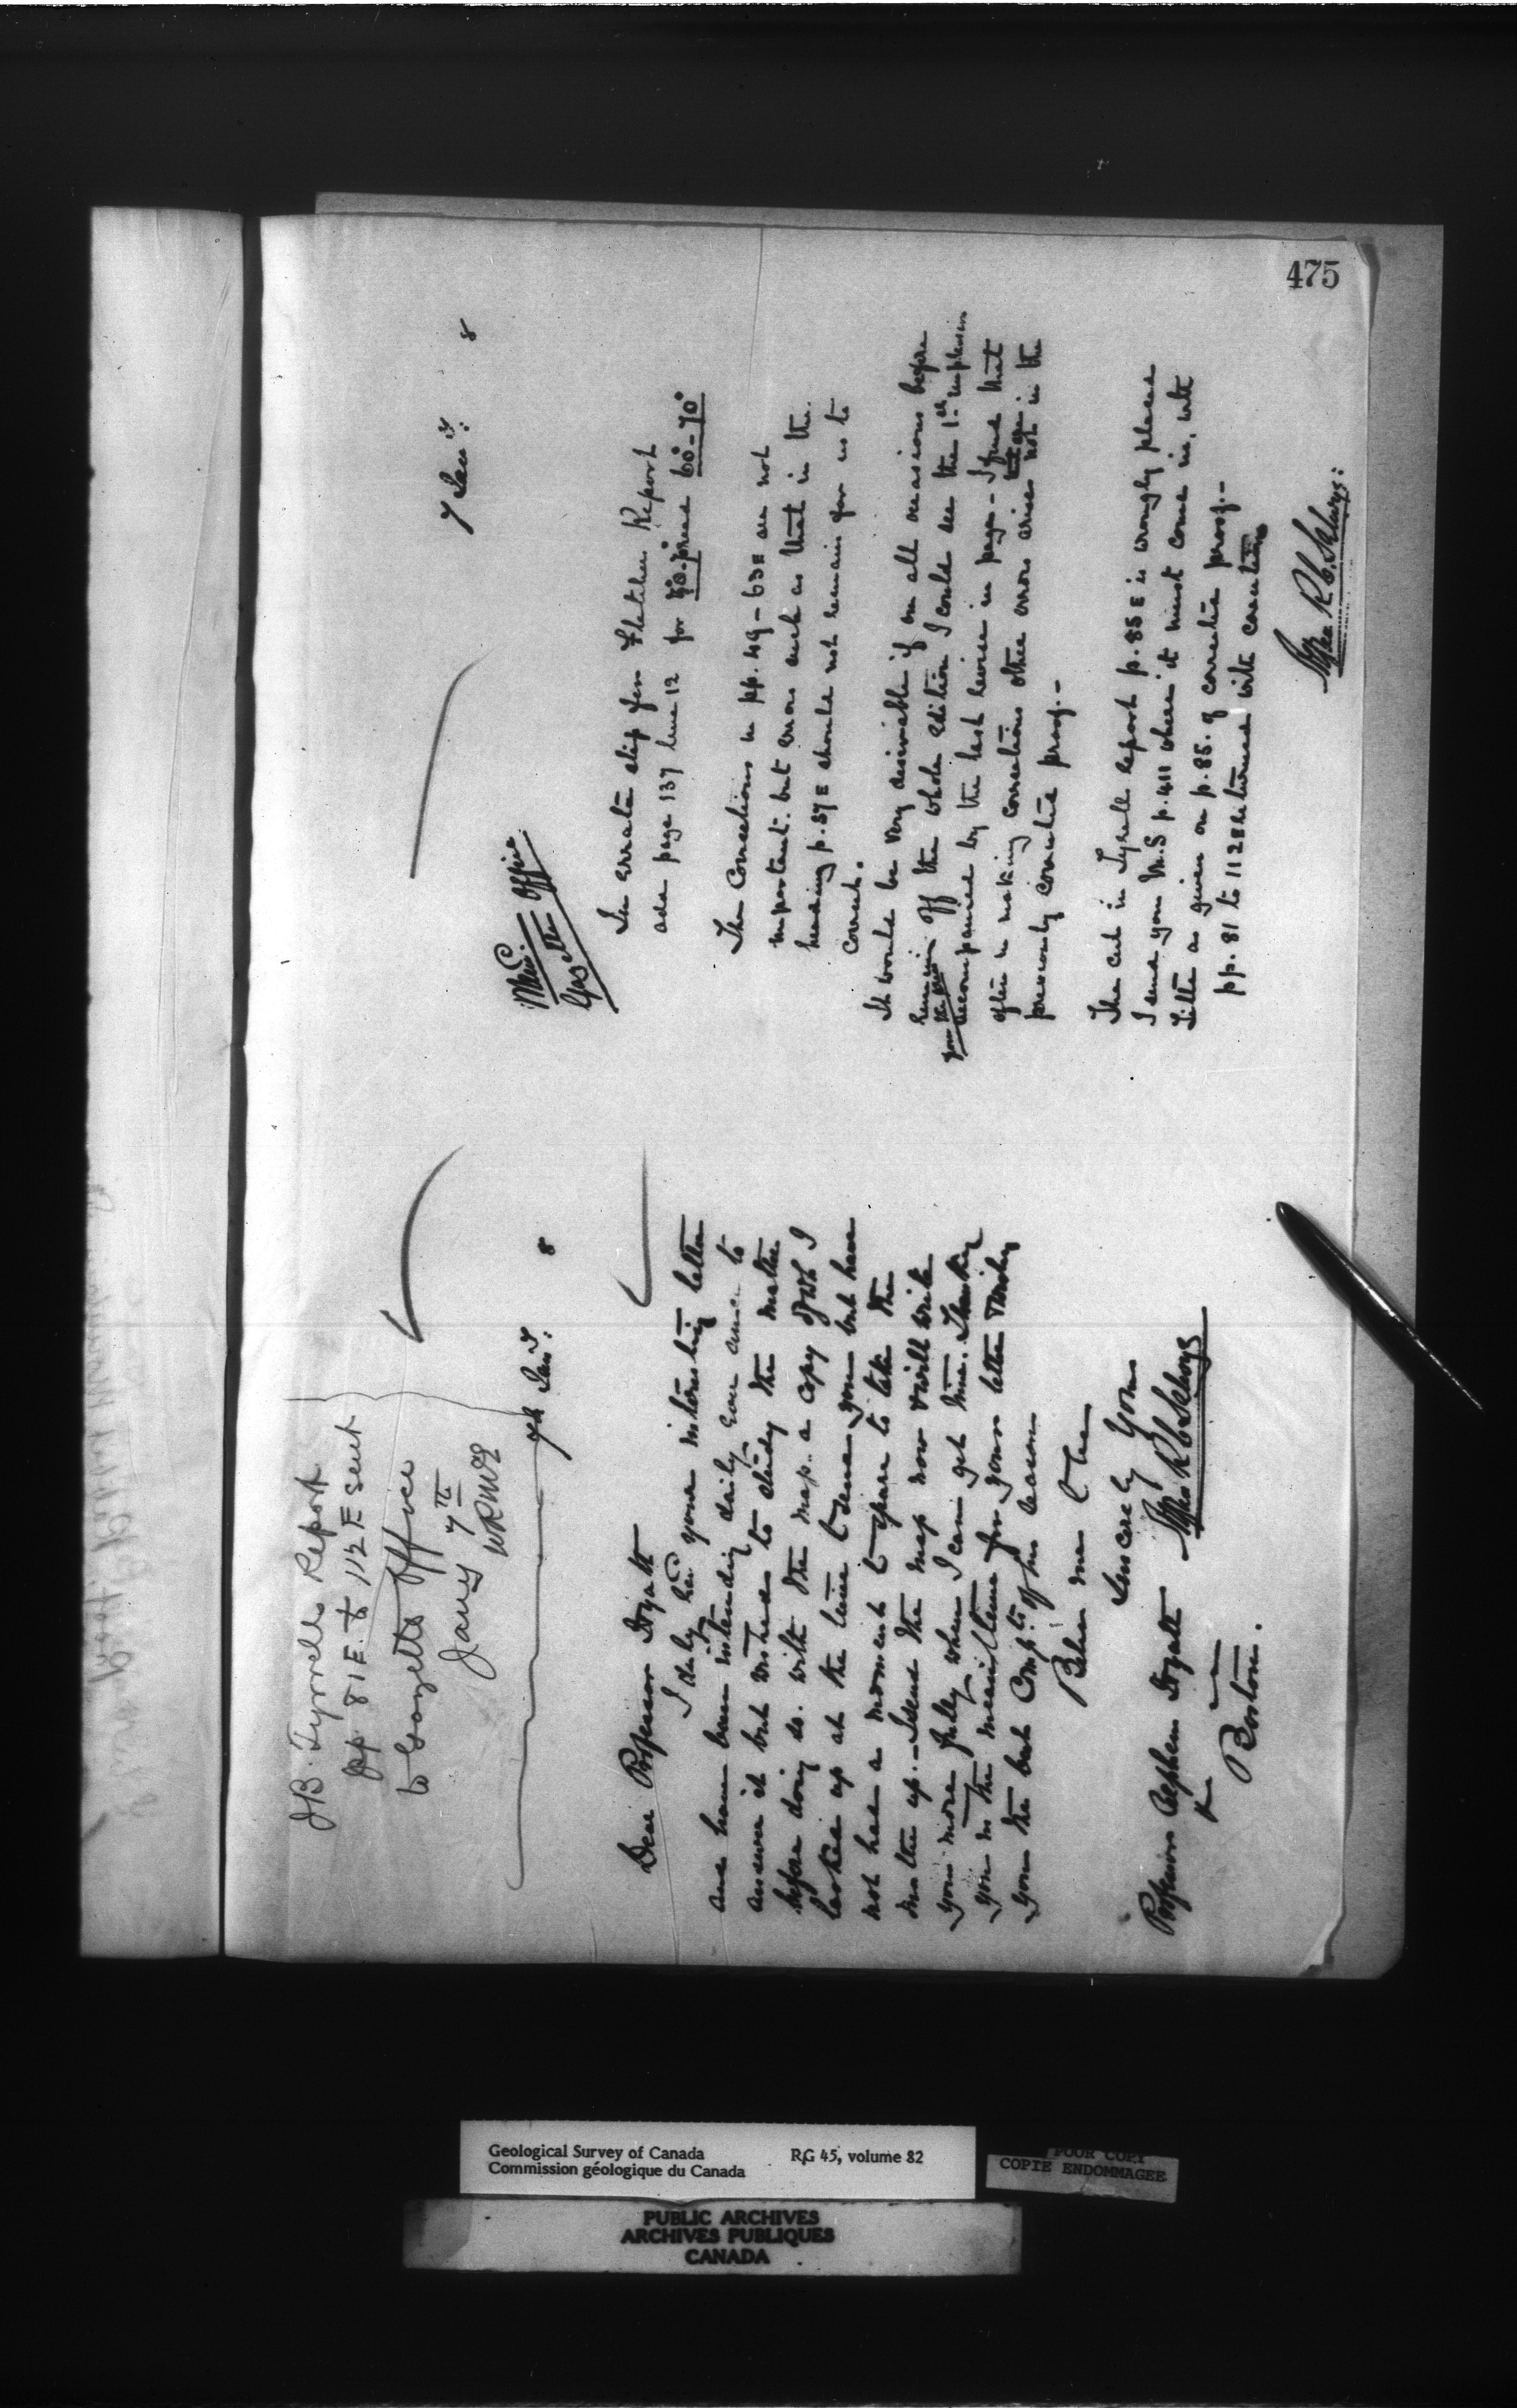 475
J.B. Tyrrells Report
pp 81 E. to 112 E sent
to Gazette Office
Jany 7th
WRMcE
7th Jany. 8
Dear Professor Hyatt
I duly had your interesting letter
and have been intending daily ever since to
answer it but wished to study the matter
before doing so. with the map.. a copy of wh I
looked up at the time to send you but have
not had a moment to spare to take the
matter up. - I send the map now & will write
you more fully when I can get time. Thanking
you in the meantime for your letter & wishing
you the best Compts of the season
Believe me to be
Sincerely Yours
Professor Alpheus Hyatt
Boston.
7 Jany. 8
Gazette Office
In errata slip for Fletcher Report
add page 137 line 12 for read 60°-70°
The Corrections in pp. 49-63E are not
important. but errors such as that in the
heading p. 57E should not remain for us to
correct.
It would be very desirable if on all occasions before
you the print off the whole edition I could see the 1st impression
accompanied by the last revise in page - I find that
often in making corrections other errors arise that are not in the
previously corrected proof. -
The cut in Tyrrell report p. 85 E is wrongly placed
I send you M.S p. 411 where it must come in, with
Title as given on p. 85. of corrected proof. -
pp. 81 to 112E returned with corrections
Geological Survey of Canada RG 45, volume 82
Commission géologique du Canada
POOR COPY
COPIE ENDOMMAGEE
PUBLIC ARCHIVES
ARCHIVES PUBLIQUES
CANADA